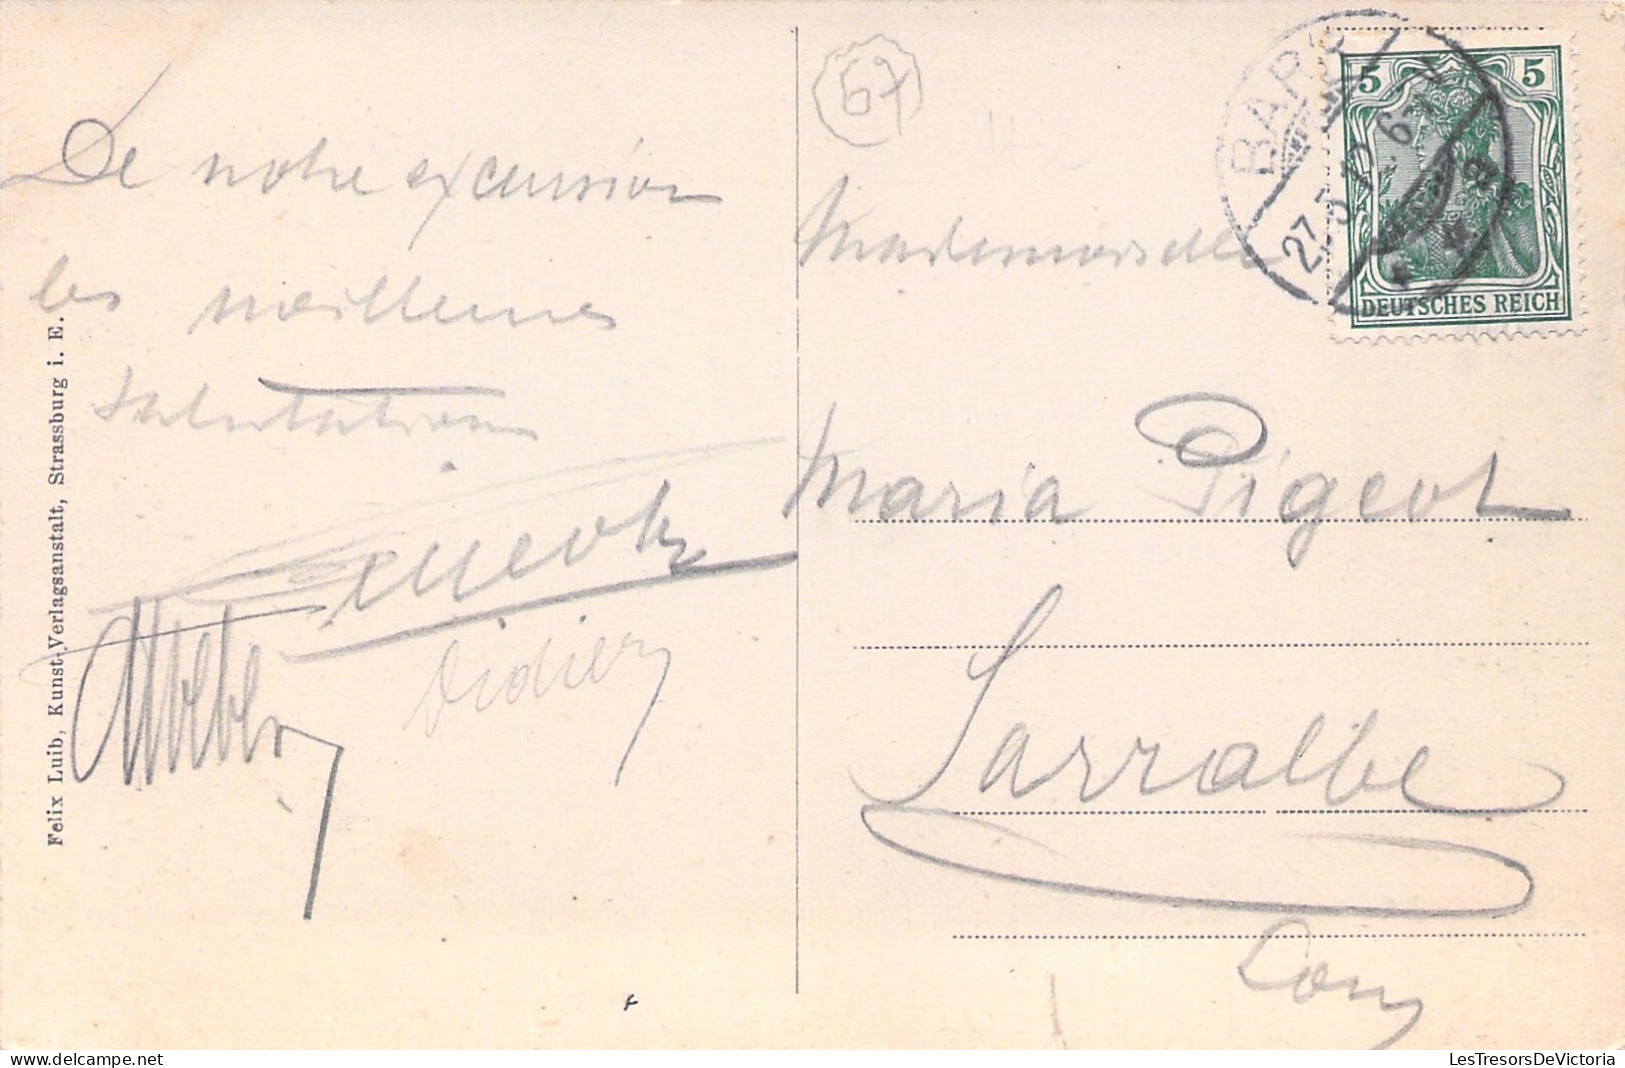 De notre excursion
les meilleures
salutations
Didier
Felix Luib, Kunst-Verlagsanstalt, Strassburg i. E.
67
Mademoiselle
Maria Pigeot
Sarralbe
Lorr
BARR
27.5.12. 6-7
5 5
DEUTSCHES REICH
LesTresorsDeVictoria